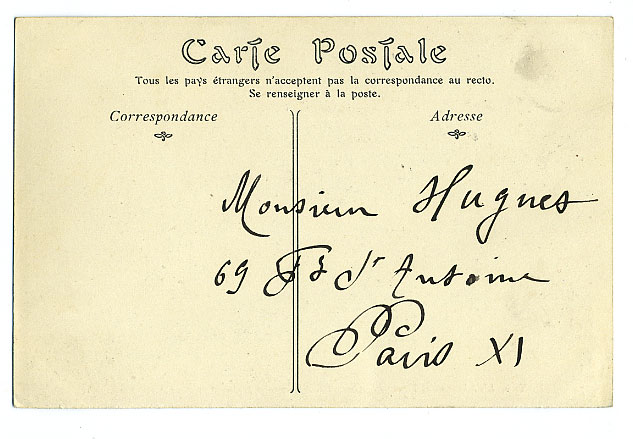 Carte Postale
Tous les pays étrangers n'acceptent pas la correspondance au recto.
Se renseigner à la poste.
Correspondance
Adresse
Monsieur Hugues
69 Fg St Antoine
Paris XI